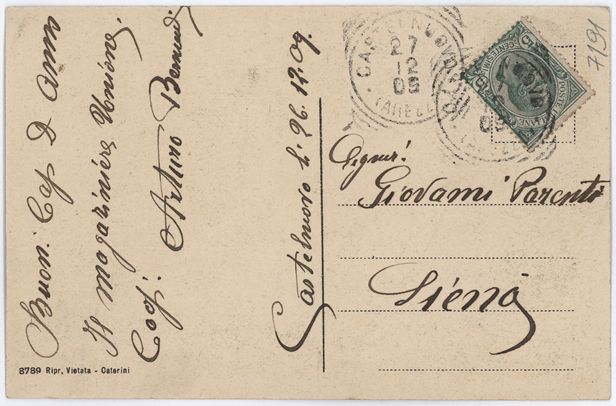 Buon. Cap D anno
Il magaziniere Unione
Coop:
Arturo
Castelnuovo li 26.12.09.
Signor:
Giovanni Parenti
Siena
CASTELNUOVO
27
12
09
09
POSTE
CENTESIMI
5
7191
8789 Ripr. Vietata - Caterini